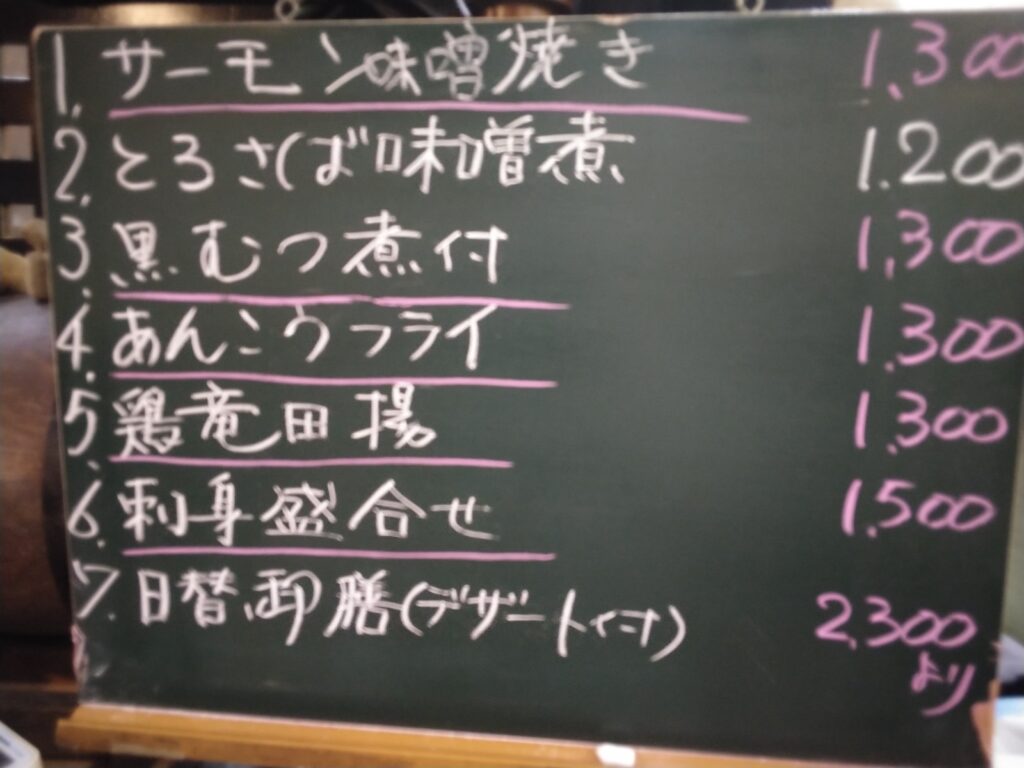 1. サーモン味噌焼き 1,300
2. とろさば味噌煮 1.200
3. 黒むつ煮付 1,300
4. あんこうフライ 1,300
5. 鶏竜田揚 1,300
6. 刺身盛合せ 1,500
7. 日替御膳(デザート付) 2,300
より